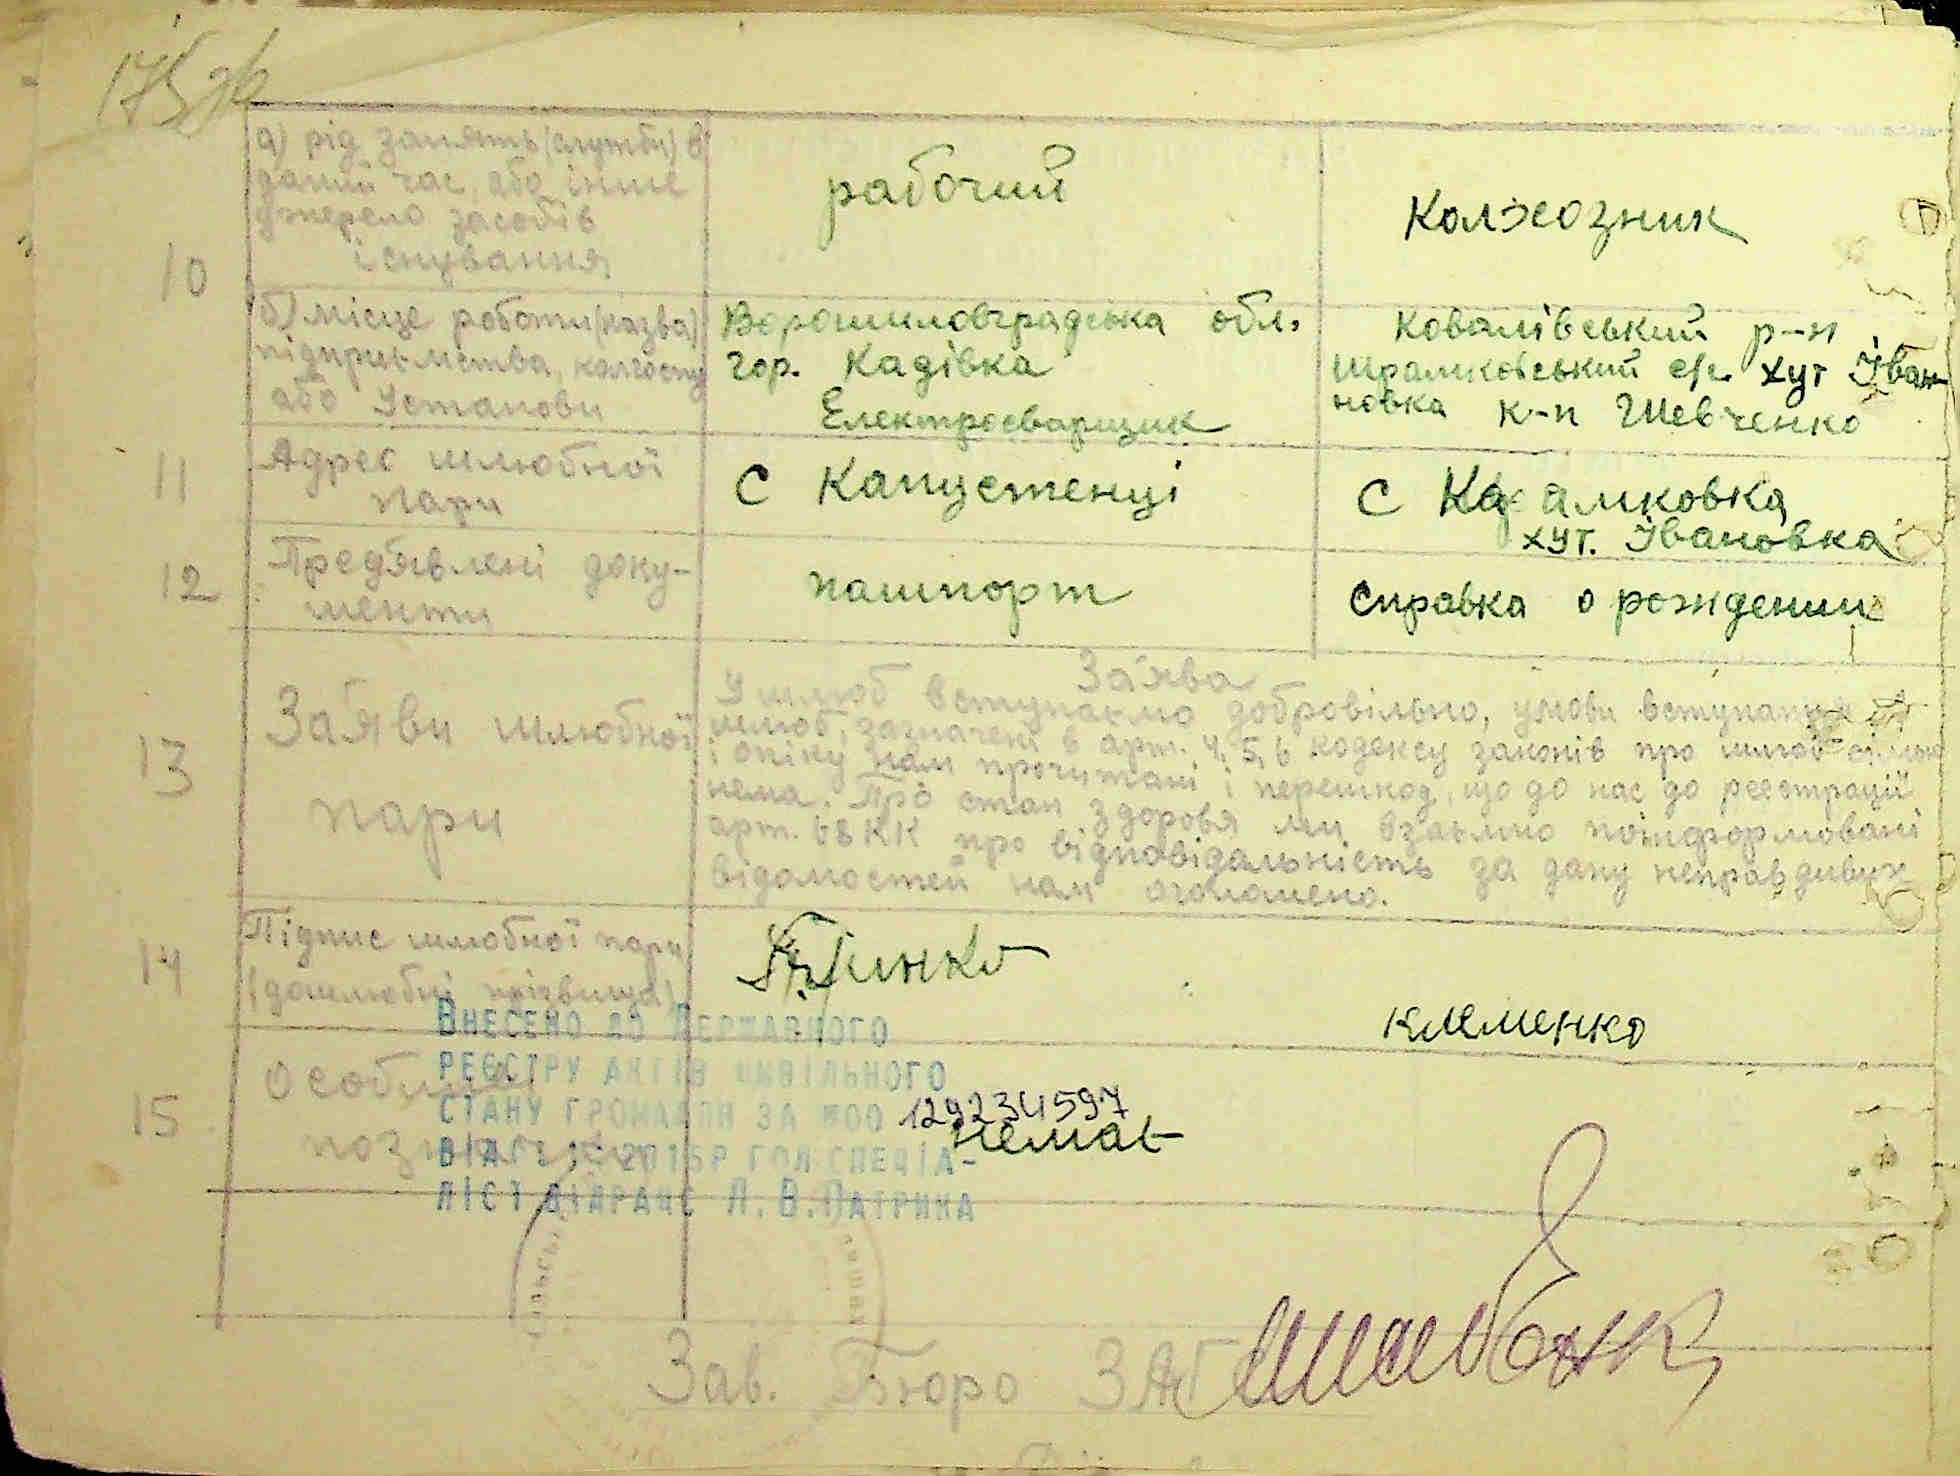 175 зв
10
а) рід занять (служби) в
даний час, або інше
джерело засобів
існування
рабочий
Колхозник
б) місце роботи (назва)
підприємства, колгоспу
або Установи
Ворошиловградська обл.
гор. Кадівка
Електросварщик
Ковалівський р-н
Шрамковський с/р. хут Іван
новка к-п Шевченко
11
Адрес шлюбної
пари
с Капустенці
с амковка
хут. Івановка
12
Предʼявлені доку-
менти
пашпорт
справка о рождении
13
Заяви шлюбної
пари
Заява
У шлюб вступаємо добровільно, умови вступання
шлюб, зазначені в арт. 4, 5, 6 кодексу законів про шлюб сімю
і опіку нам прочитані і перешкод, що до нас до реєстрації
нема. Про стан здоровя ми взаємно поінформовані
арт. 68 КК про відповідальність за дану неправдивих
відомостей нам оголошено.
14
Підпис шлюбної пари
(дошлюбні прізвища)
клеменко
15
Особливі
позначки
немає
Внесено до Державного
реєстру актів цивільного
стану громадян за №00 129234597
від 2015р гол.спеціа-
ліст відрацс Л.В.Патрика
Зав. Бюро ЗАГС